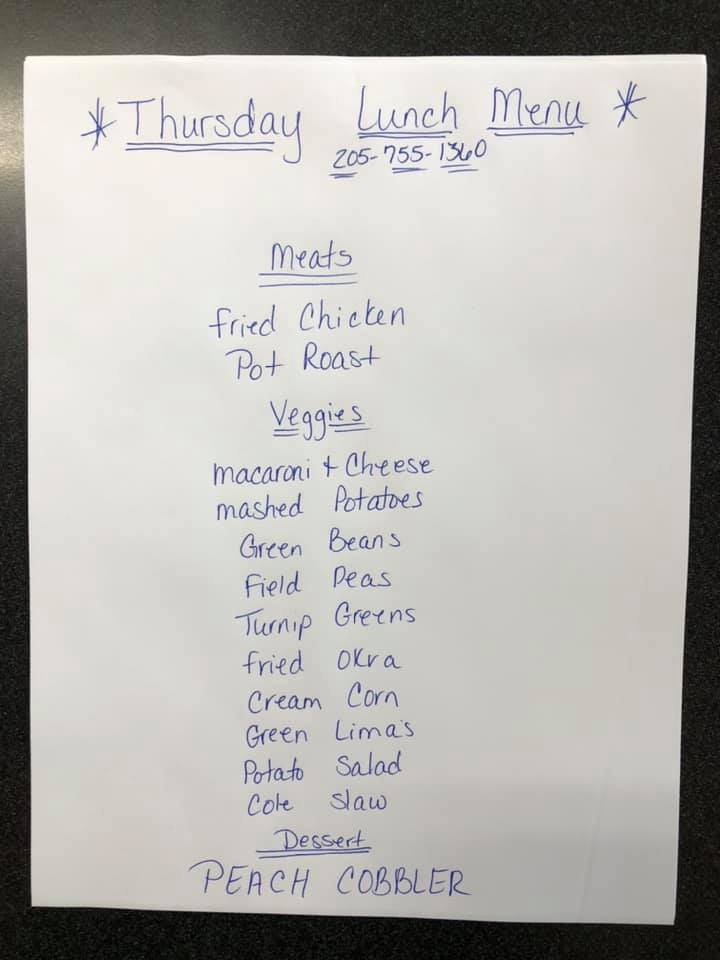 * Thursday Lunch Menu *
205-755-1360
Meats
fried Chicken
Pot Roast
Veggies
macaroni + Cheese
mashed Potatoes
Green Beans
Field Peas
Turnip Greens
fried Okra
Cream Corn
Green Lima's
Potato Salad
Cole Slaw
Dessert
PEACH COBBLER